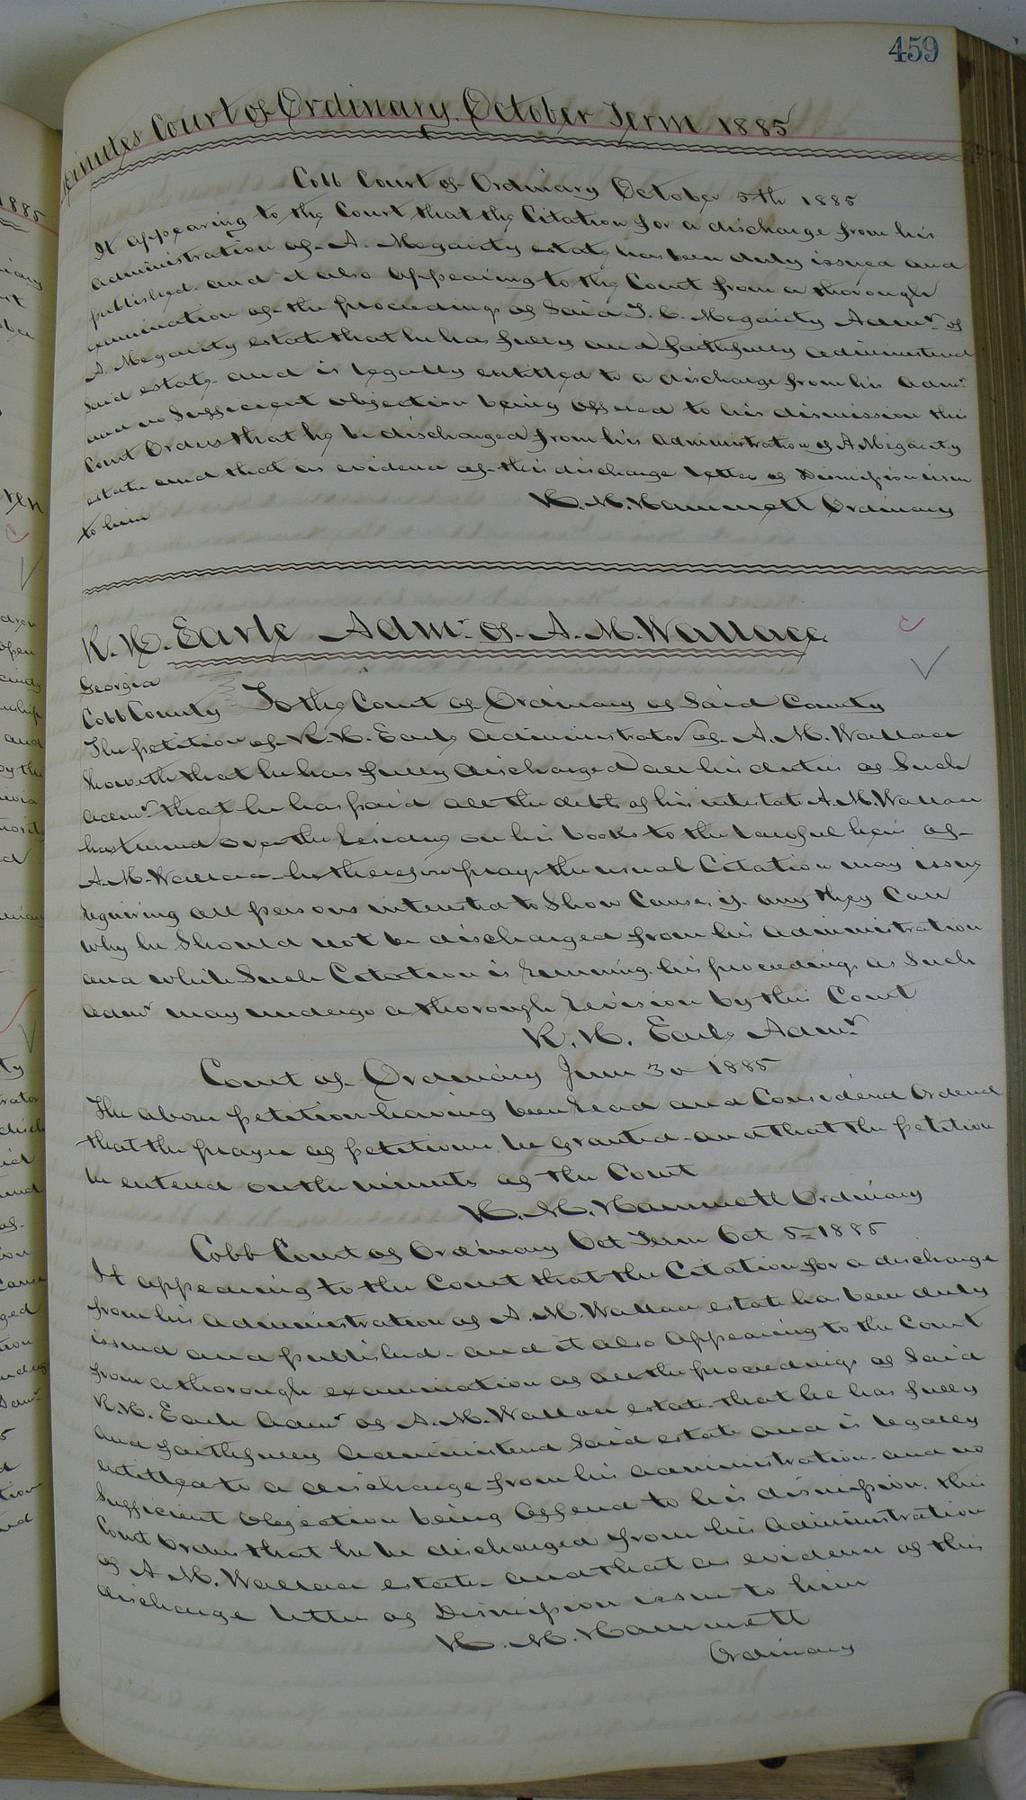 459
Minutes Court of Ordinary October Term 1885
Cobb Court of Ordinary October 5th 1885
It appearing to the Court that the Citation for a discharge from his
administration of A. Megarity estate has been duly issued and
published and it also appearing to the Court from a thorough
examination of the proceedings of Said J. C. Megarity Admr of
A. Megarity estate that he has fully and faithfully administered
Said estate and is legally entitled to a discharge from his Admr
and no Sufficient objection being offered to his dismission this
Court Orders that he be discharged from his administration of A Megarity
estate and that as evidence of this discharge letters of Dismission issue
to him
H. M. Hammett Ordinary
R. H. Earle Admr of A. M. Wallace
Georgia
Cobb County To the Court of Ordinary of Said County
The petition of R. H. Earle administrator of A. M. Wallace
Showeth that he has fully discharged all his duties as Such
admr that he has paid all the debts of his intestate A. M. Wallace
has turned over the residue on his books to the lawful heirs of
A. M. Wallace he therefore prays the usual Citation may issue
requiring all persons interested to Show Cause if any they Can
why he Should not be discharged from his administration
and while Such Citation is running his proceedings as Such
admr may undergo a thorough revision by this Court
R. H. Earle Admr
Court of Ordinary June 30 1885
The above petition having been read and Considered Ordered
that the prayer of petitioner be granted and that the petition
be entered on the minutes of the Court
H. M. Hammett Ordinary
Cobb Court of Ordinary Oct Term Oct 5= 1885
It appearing to the Court that the Citation for a discharge
from his administration of A. M. Wallace estate has been duly
issued and published and it also appearing to the Court
from a thorough examination of all the proceedings of Said
R. H. Earle Admr of A. M. Wallace estate that he has fully
and faithfully administered Said estate and is legally
entitled to a discharge from his administration and no
Sufficient objection being offered to his dismission this
Court Orders that he be discharged from his administration
of A. M. Wallace estate and that as evidence of this
discharge letters of Dismission issue to him
H. M. Hammett
Ordinary